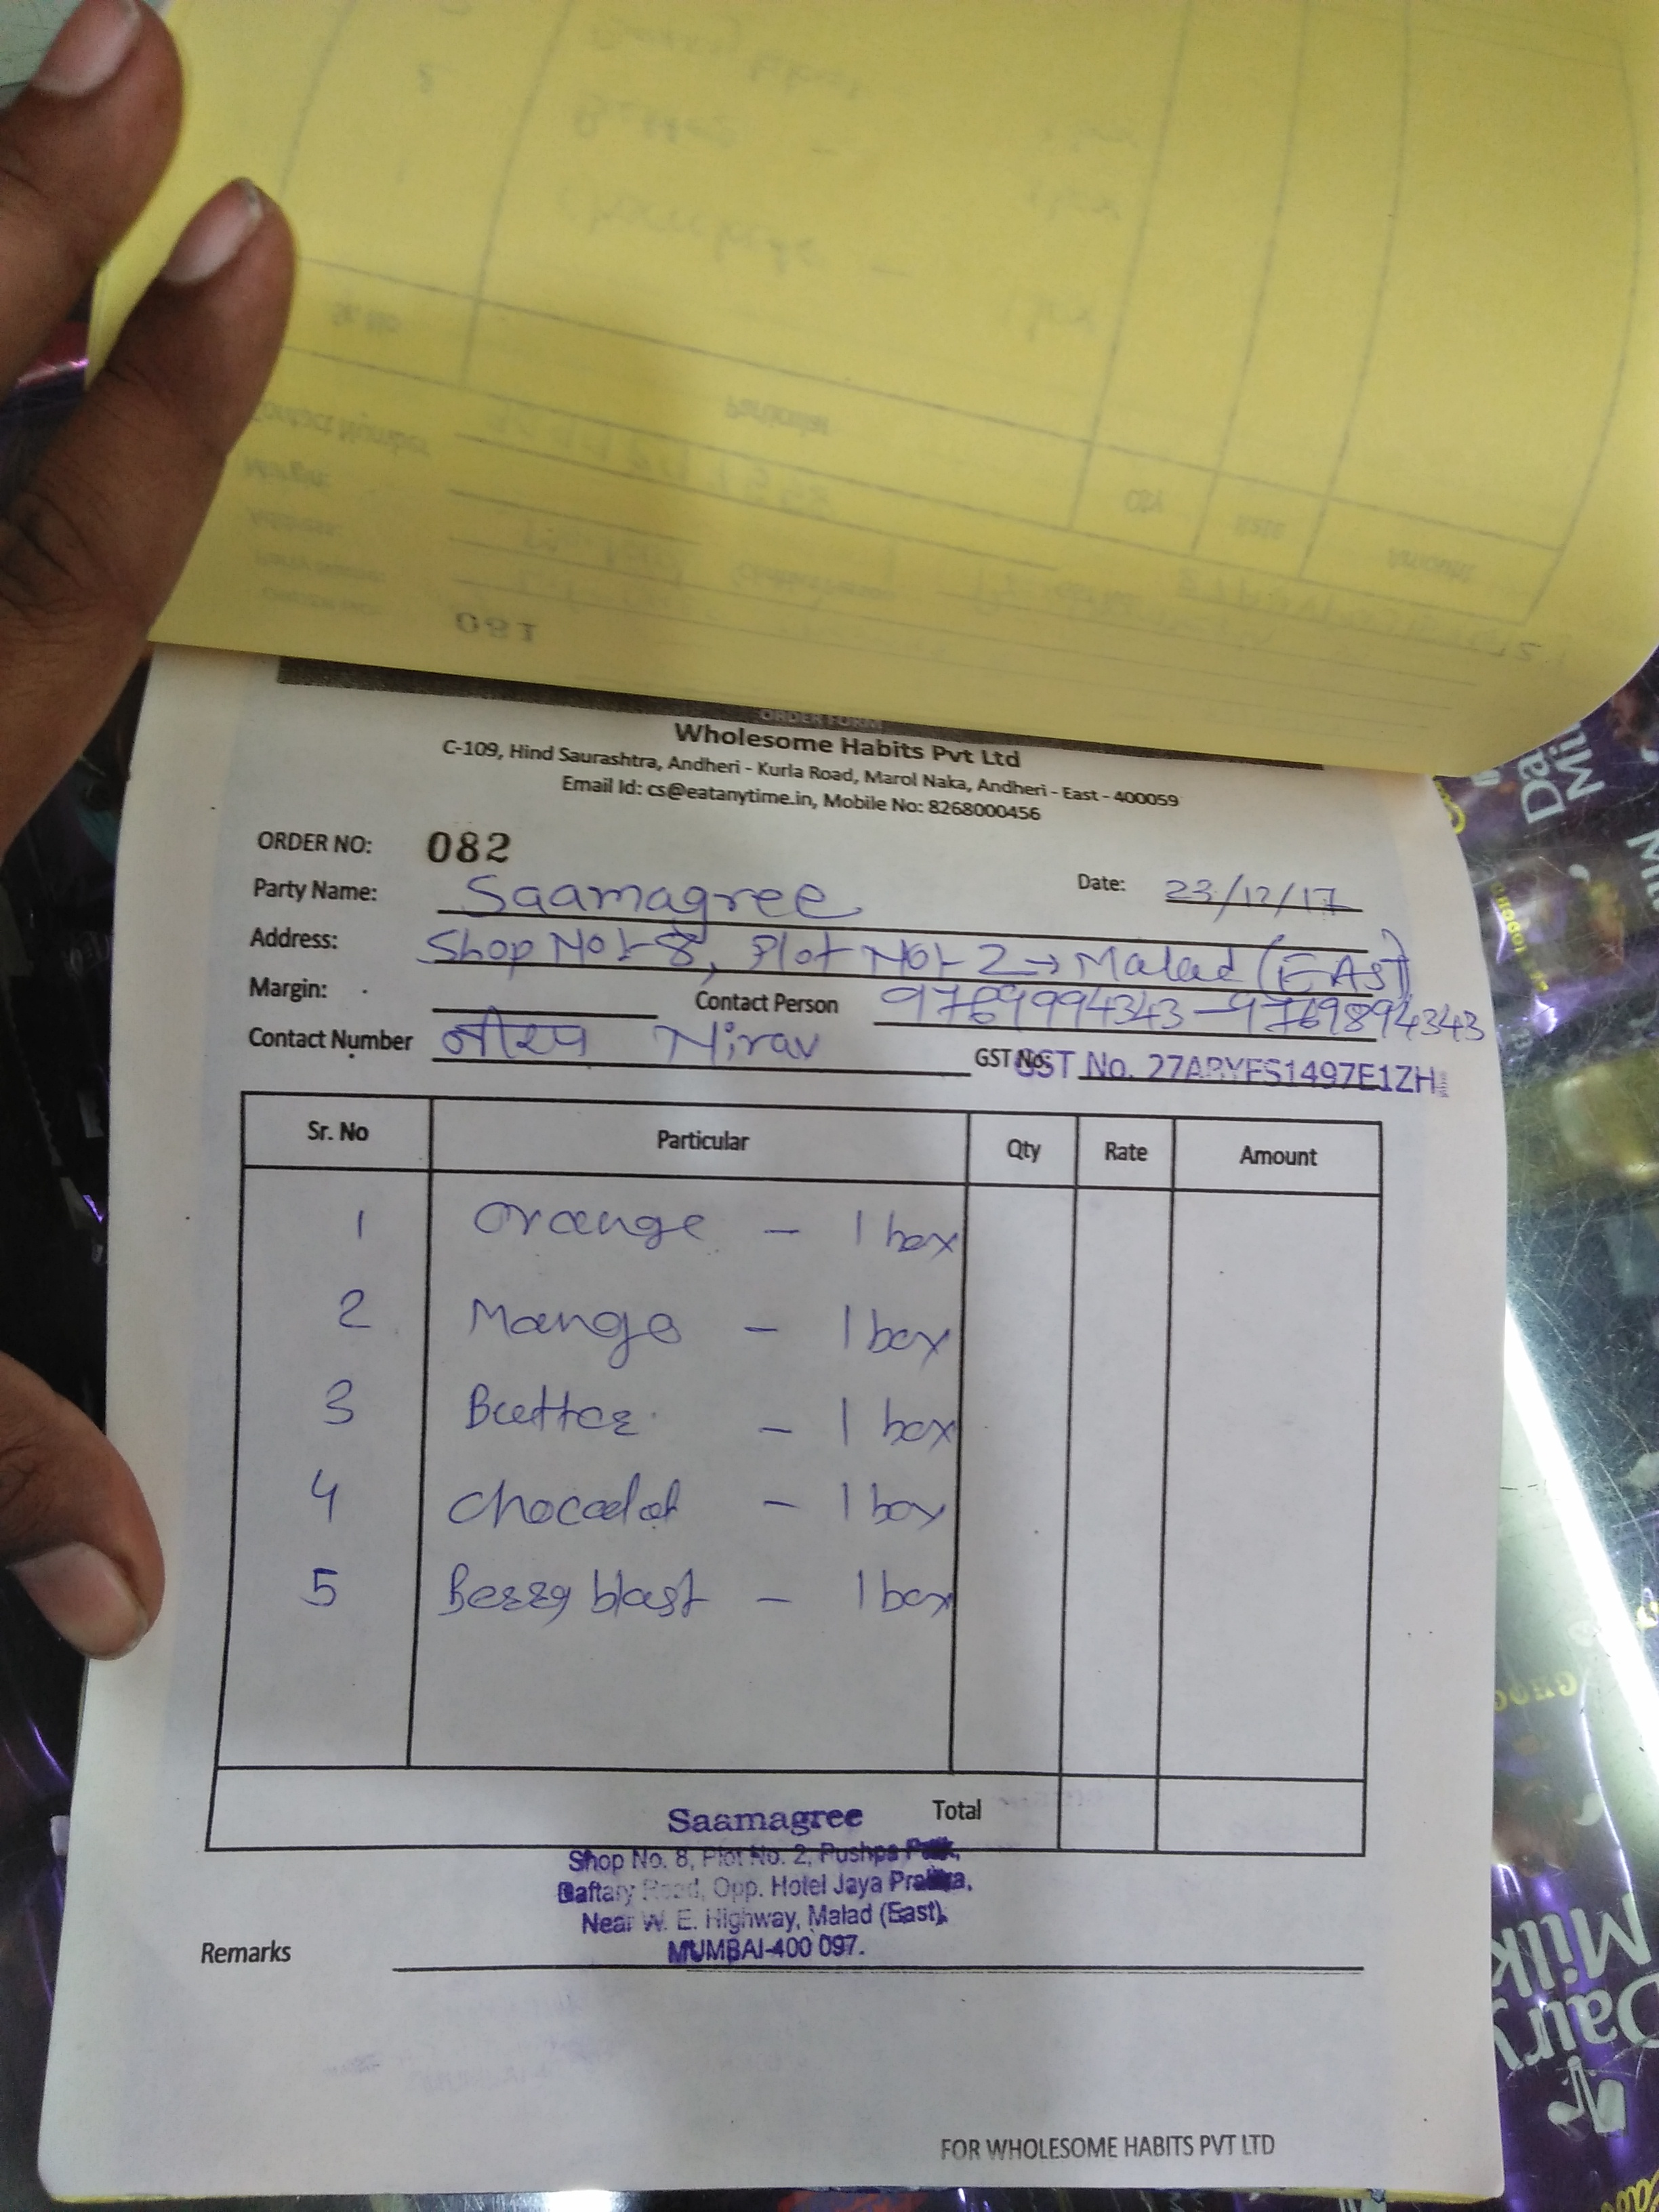 081
ORDER FORM
Wholesome Habits Pvt Ltd
C-109, Hind Saurashtra, Andheri - Kurla Road, Marol Naka, Andheri - East - 400059
Email Id: cs@eatanytime.in, Mobile No: 8268000456
ORDER NO: 082
Party Name: Saamagree Date: 23/12/17
Address: Shop No:- 8, Plot No:- 2 → Malad (EAST)
Margin: Contact Person 9769994343 - 9769894343
Contact Number Nirav GST No. GST No. 27ABYFS1497E1ZH
Sr. No Particular Qty Rate Amount
1 Orange - 1 box
2 Mango - 1 box
3 Butter - 1 box
4 Chocolat - 1 box
5 Berry blast - 1 box
Total
Saamagree
Shop No. 8, Plot No. 2, Pushpa Park,
Daftary Road, Opp. Hotel Jaya
Near W. E. Highway, Malad (East),
MUMBAI-400 097.
Remarks
FOR WHOLESOME HABITS PVT LTD
Dairy
Milk